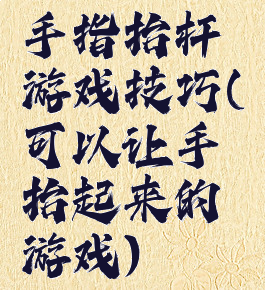 手指抬杆
游戏技巧(
可以让手
抬起来的
游戏)